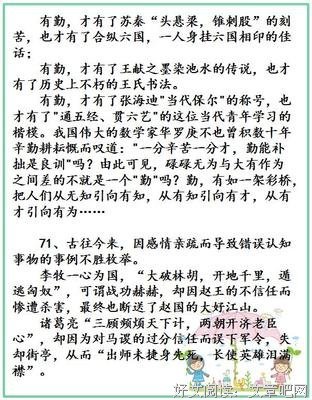 有勤，才有了苏秦“头悬梁，锥刺股”的刻
苦，也才有了合纵六国，一人身挂六国相印的佳
话；
有勤，才有了王献之墨染池水的传说，也才
有了历史上不朽的王氏书法。
有勤，才有了张海迪"当代保尔"的称号，也
才有了"通五经、贯六艺"的这位当代青年学习的
楷模。我国伟大的数学家华罗庚不也曾积数十年
辛勤耕耘慨而叹道："一分辛苦一分才，勤能补
拙是良训"吗？由此可见，碌碌无为与大有作为
之间差的不就是一个"勤"吗？勤，有如一架彩桥，
把人们从无知引向有知，从有知引向有才，从有
才引向有为……
71、古往今来，因感情亲疏而导致错误认知
事物的事例不胜枚举。
李牧一心为国，“大破林胡，开地千里，遁
逃匈奴”，可谓战功赫赫，却因赵王的不信任而
惨遭杀害，最终也断送了赵国的大好江山。
诸葛亮“三顾频烦天下计，两朝开济老臣
心”，却因为对马谡的过分信任而误下军令，失
却街亭，从而“出师未捷身先死，长使英雄泪满
襟”。
好文阅读：文壹吧网